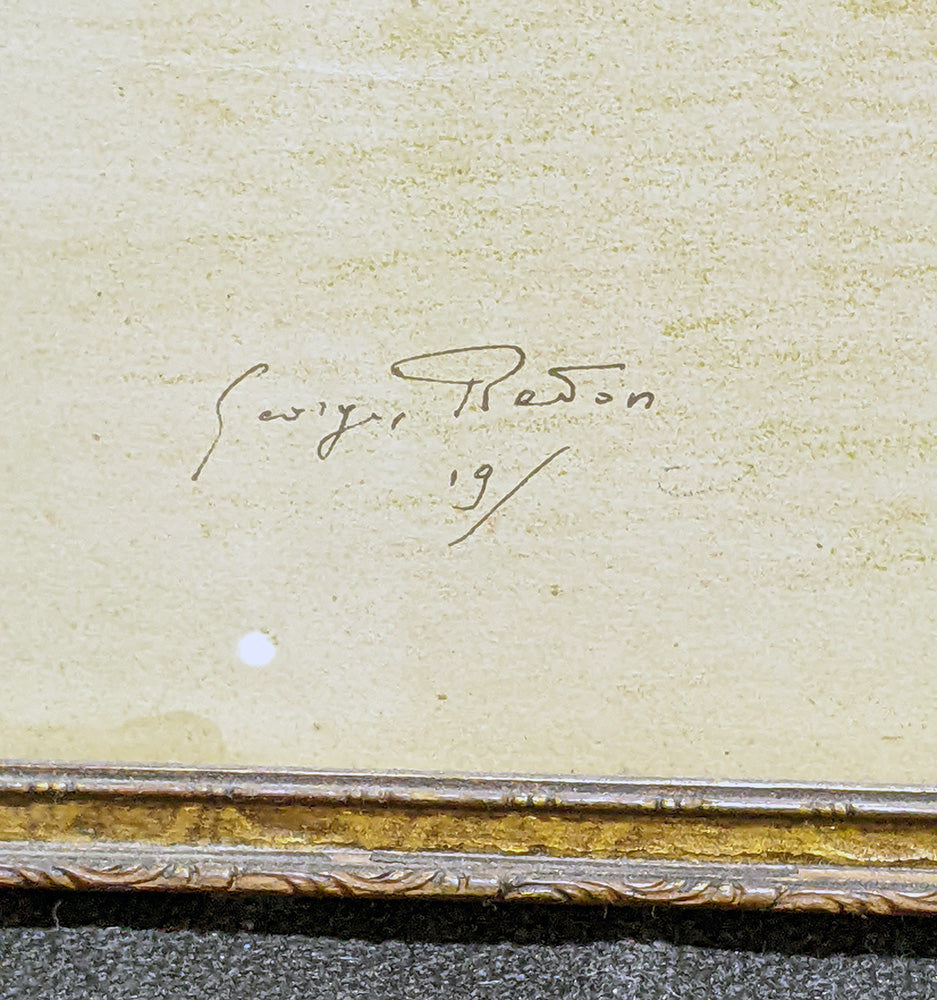 Georges Redon
19/